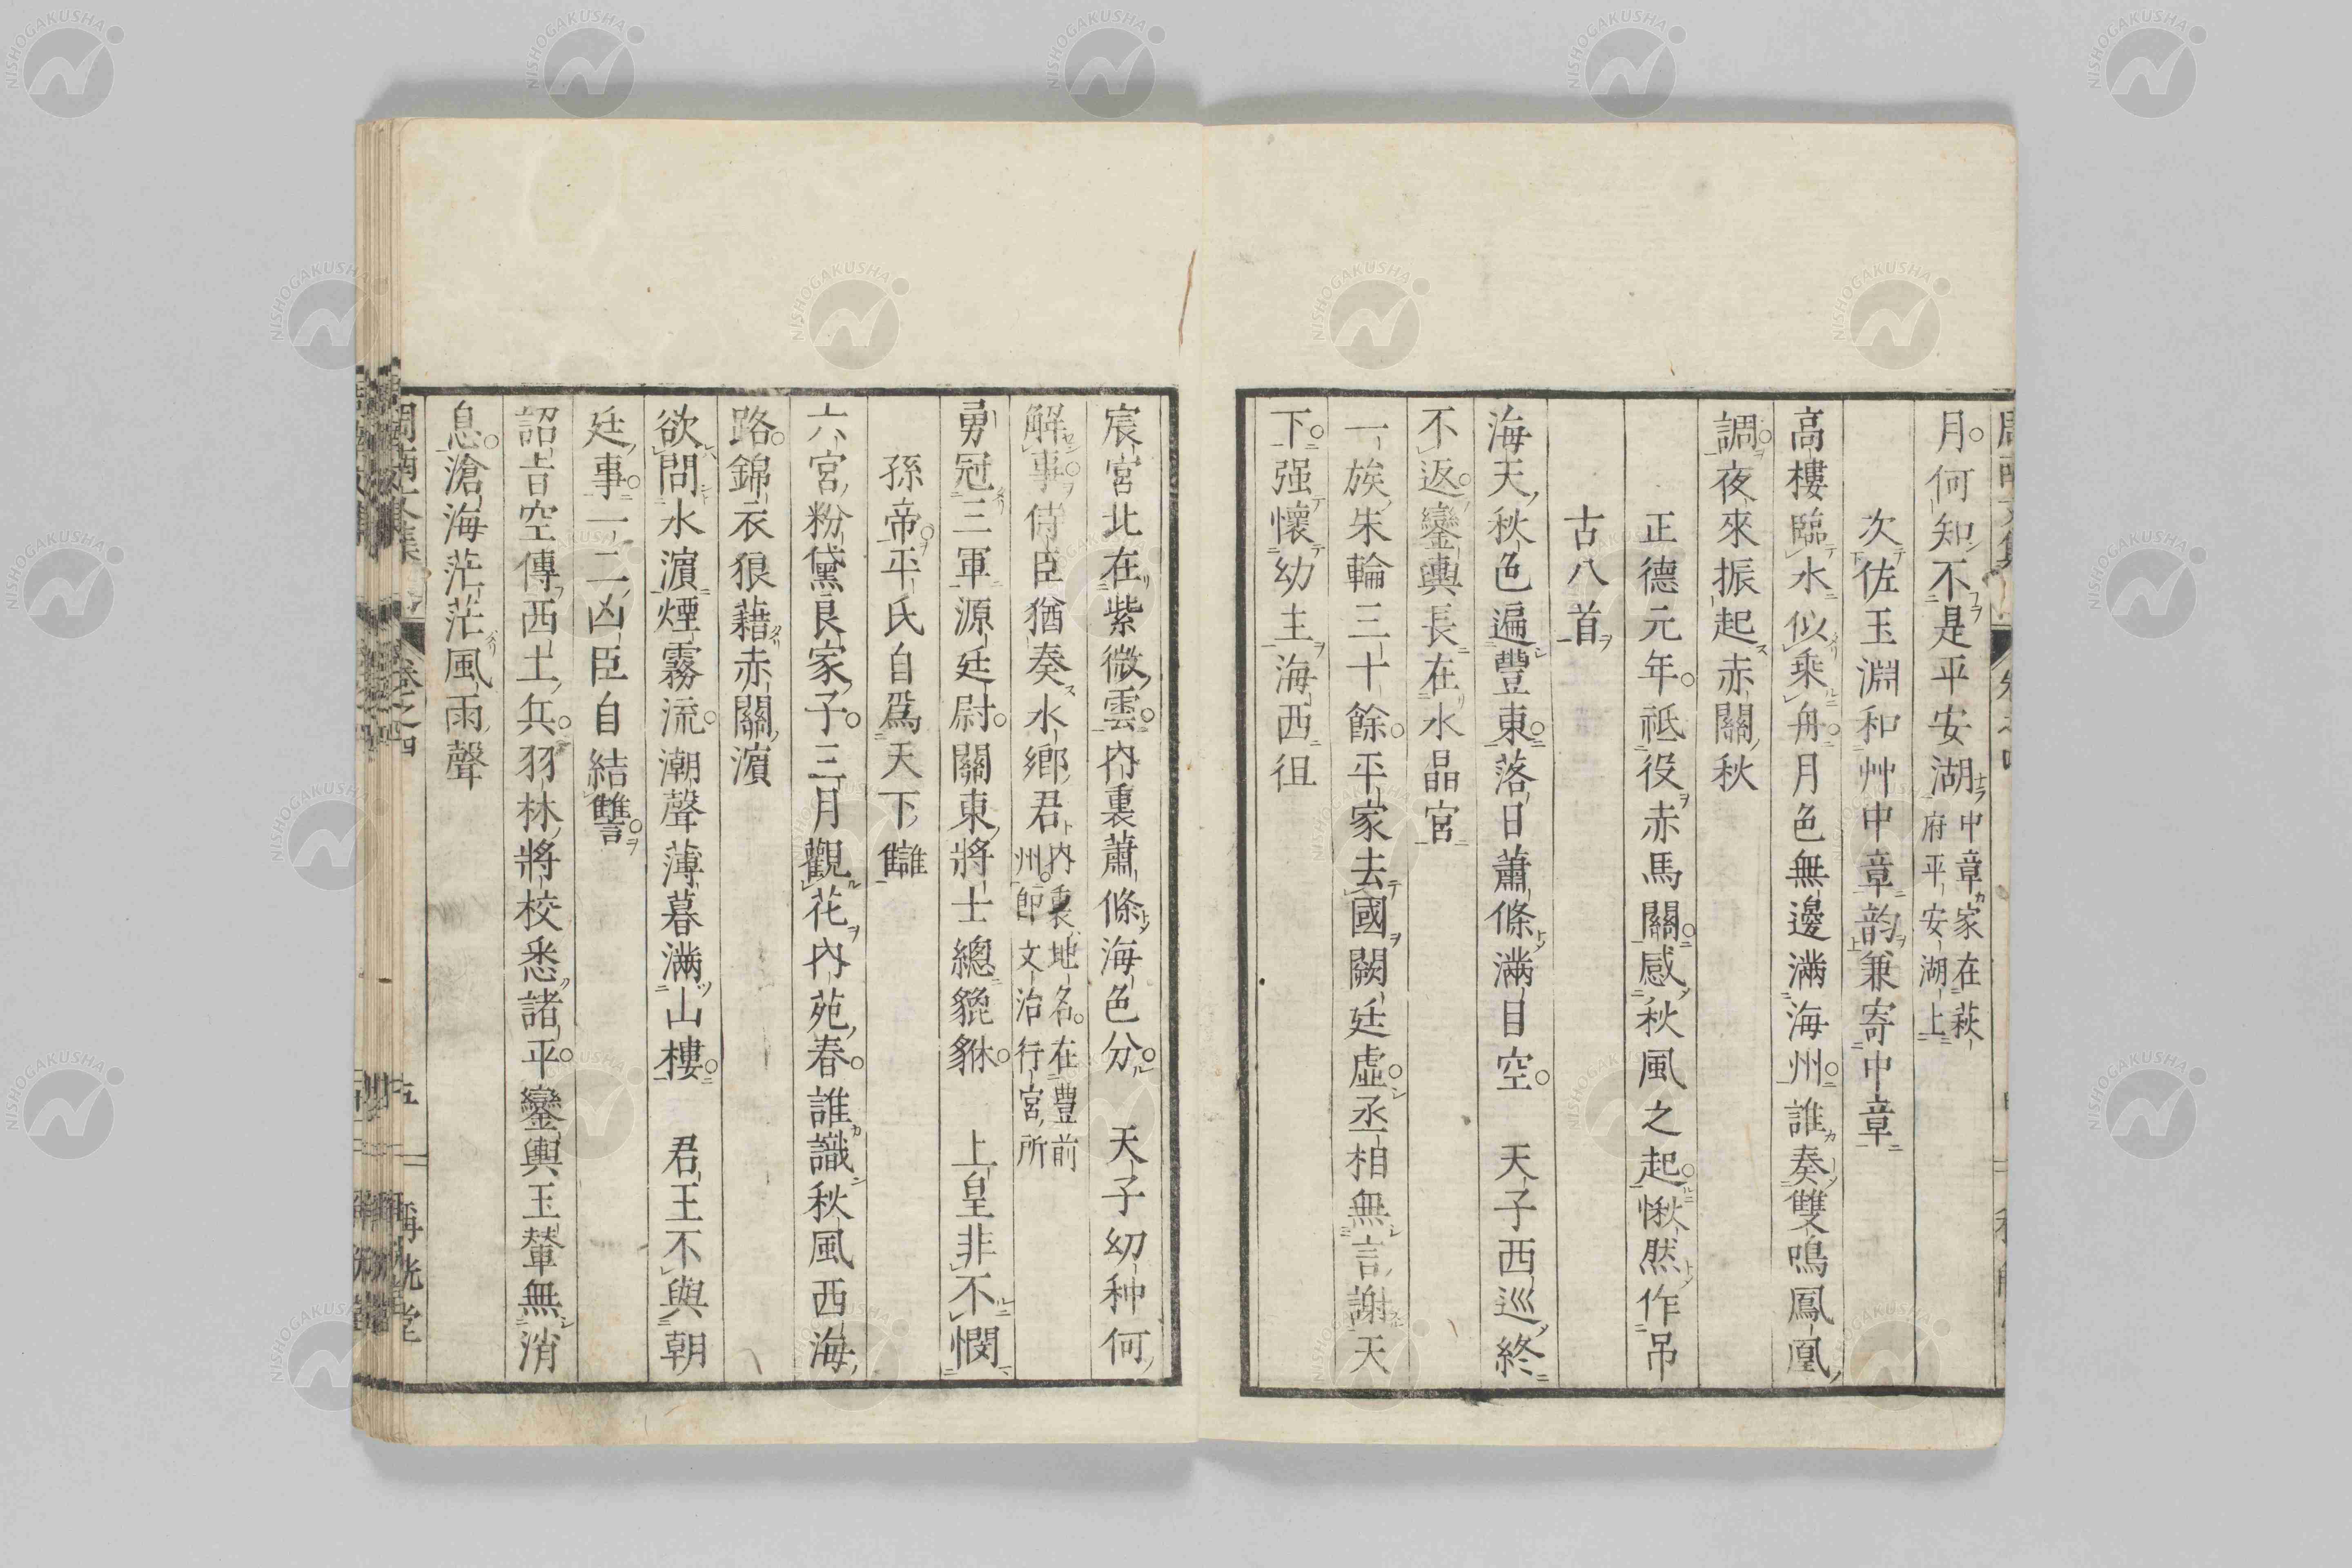 月何知不是平安湖 中章家在萩府平安湖上
次佐玉淵和艸中章韵兼寄中章
高樓臨水似乘舟月色無邊滿海州誰奏雙鳴鳳凰
調夜來振起赤關秋
正德元年祗役赤馬關感秋風之起愀然作吊
古八首
海天秋色遍豐東落日蕭條滿目空 天子西巡終
不返鑾輿長在水晶宮
一族朱輪三十餘平家去國闕廷虛丞相無言謝天
下强懷幼主海西徂
宸宮北在紫微雲内裏蕭條海色分 天子幼种何
解事侍臣猶奏水鄉君 内裏地名在豐前州即文治行宮所
勇冠三軍源廷尉關東將士總貔貅 上皇非不憫
孫帝平氏自爲天下讎
六宮粉黛良家子三月觀花内苑春誰識秋風西海
路錦衣狼藉赤關濵
欲問水濵煙霧流潮聲薄暮滿山樓 君王不與朝
廷事一二凶臣自結讐
詔旨空傳西土兵羽林將校悉諸平鑾輿玉輦無消
息滄海茫茫風雨聲
周南文集 卷之四 五
NISHOGAKUSHA